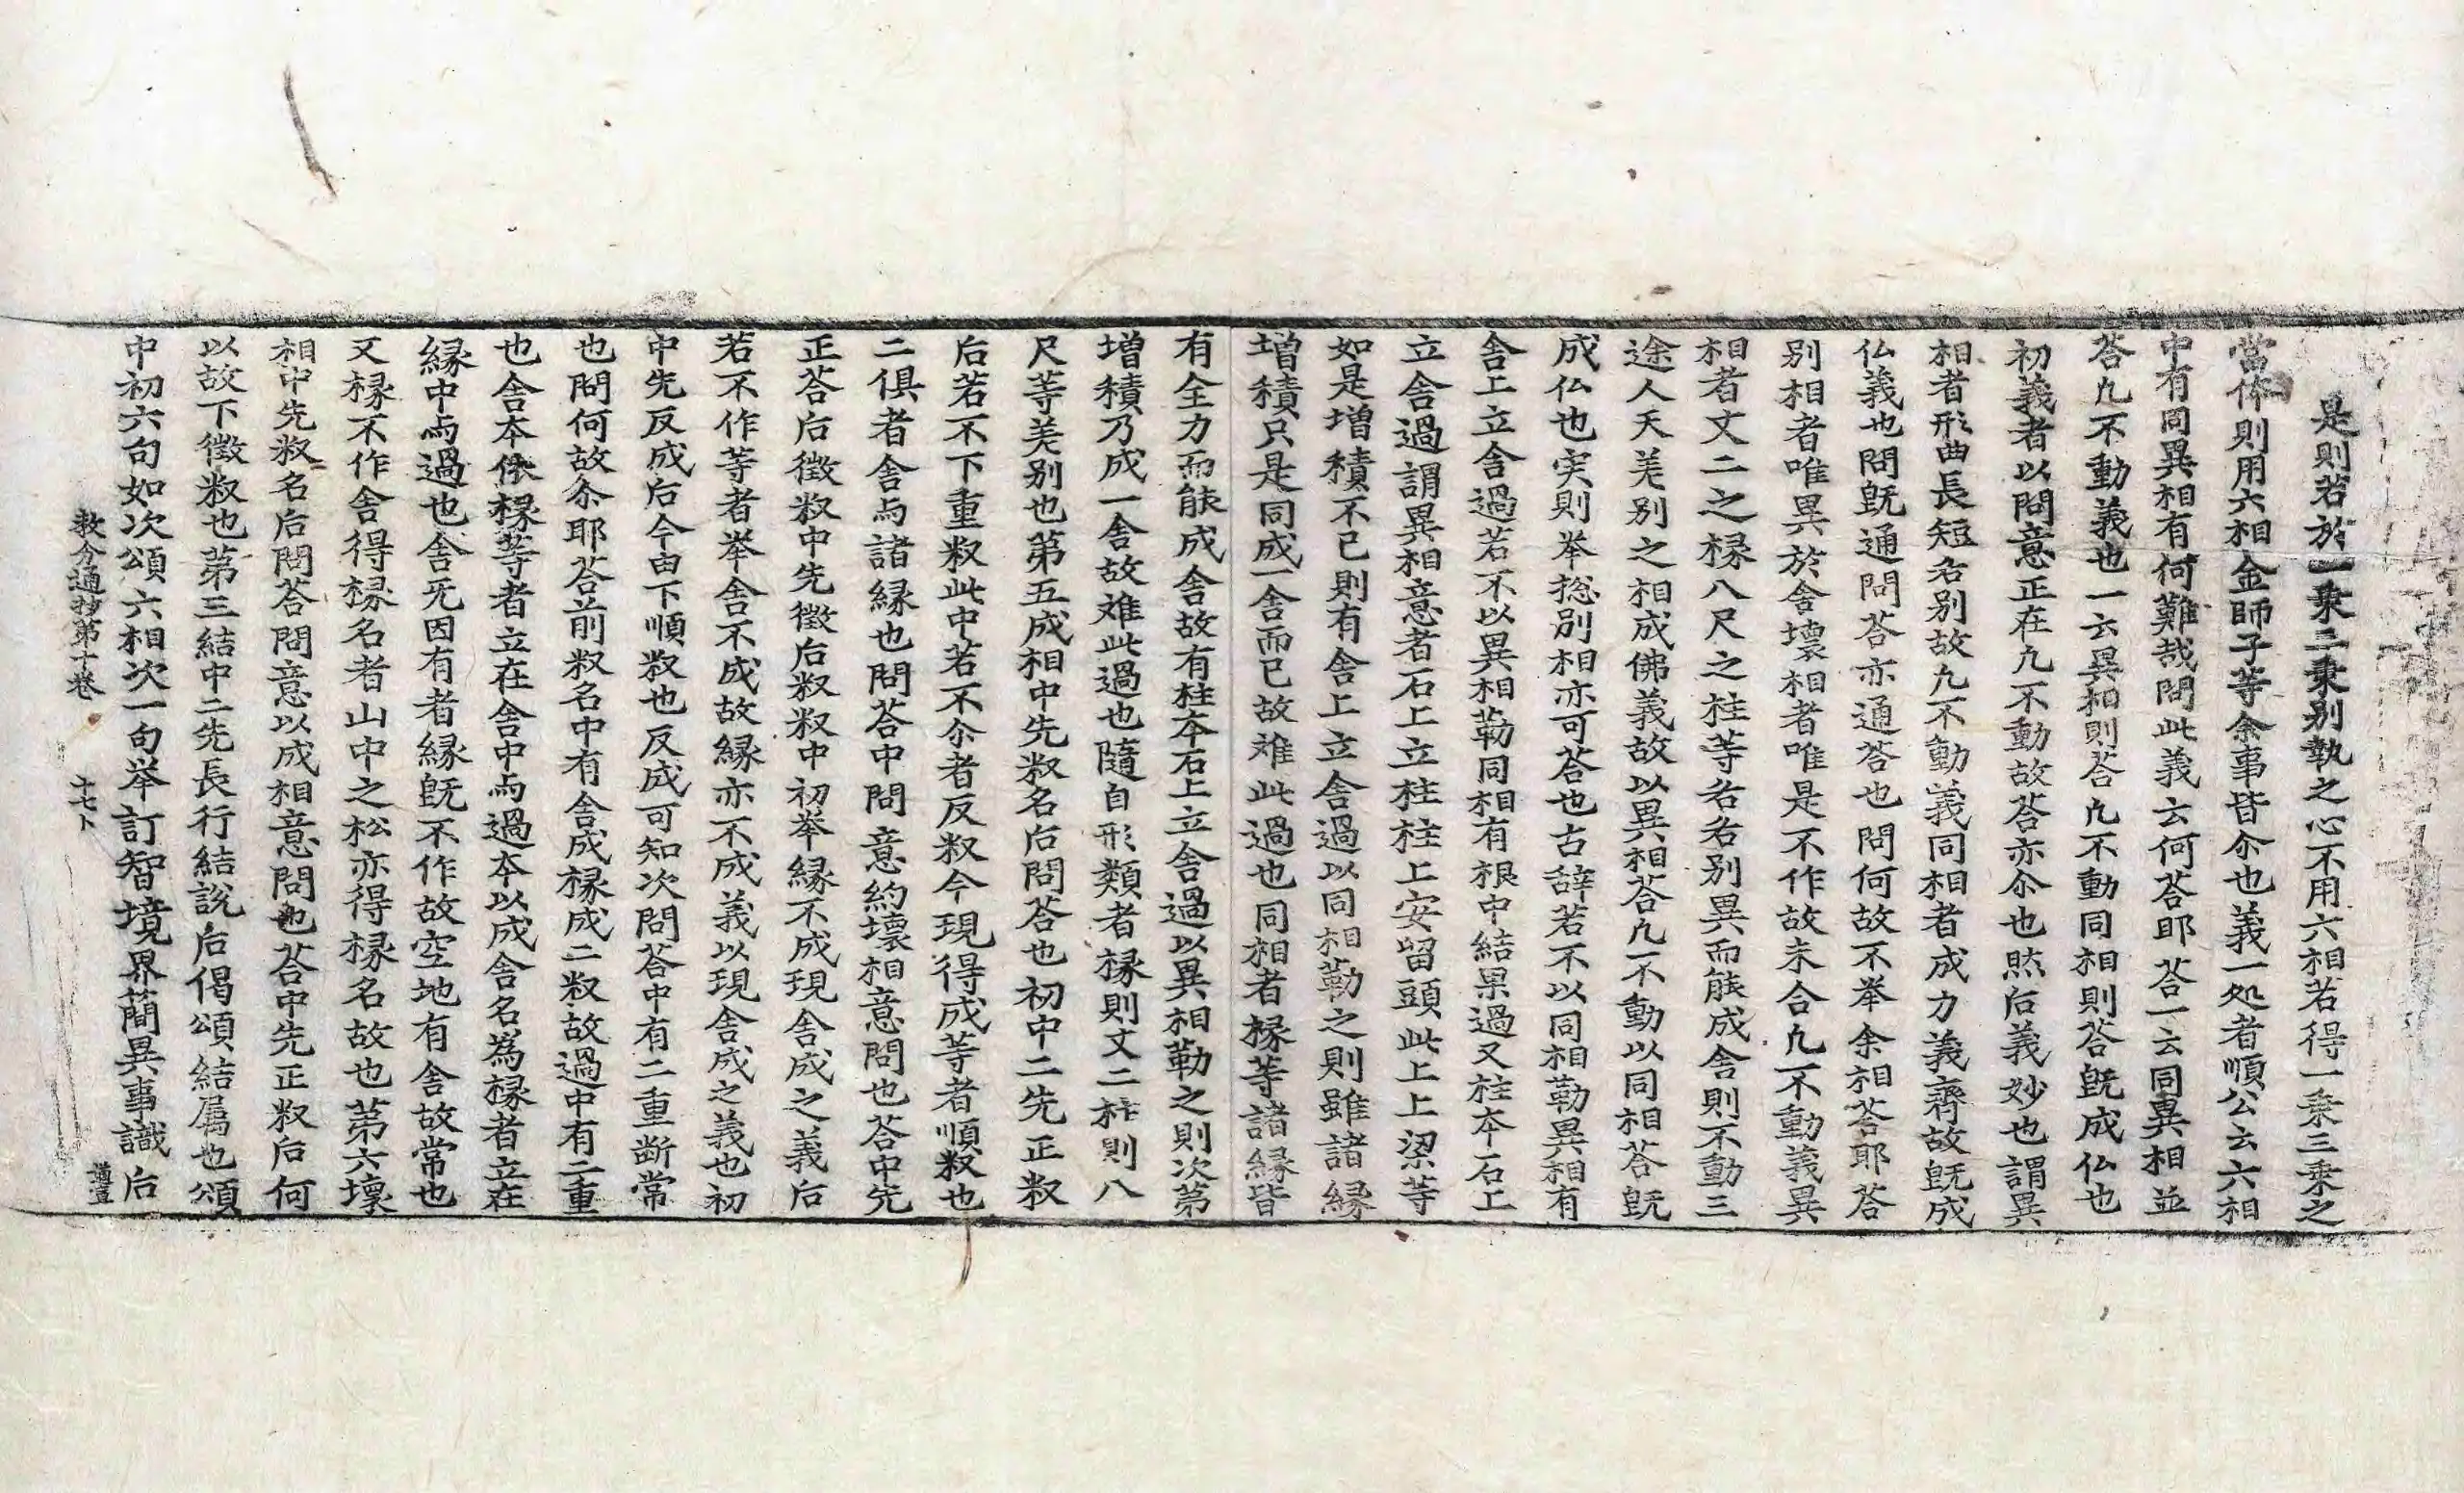 是則若於一乗二乗別執之心不用六相若得一乗三乗之
當体則用六相金師子等余事皆尒也義一処者順公云六相
中有同異相有何難哉問此義云何荅耶荅一云同異相並
荅九不動義也一云異相則荅九不動同相則荅旣成仏也
初義者以問意正在九不動故荅亦尒也然后義妙也謂異
相者形曲長短名別故九不動義同相者成力義齊故旣成
仏義也問旣通問荅亦通荅也問何故不举余相荅耶荅
別相者唯異於舍壞相者唯是不作故未合九不動義異
相者丈二之椽八尺之柱等名名別異而能成舍則不動三
途人天差別之相成佛義故以異相荅九不動以同相荅旣
成仏也実則举捴別相亦可荅也古辞若不以同相勒異相有
舍上立舍過若不以異相勒同相有根中結果過又柱夲石上
立舍過謂異相意者石上立柱柱上安留頭此上上梁等
如是增積不已則有舍上立舍過以同相勒之則雖諸緣
增積只是同成一舍而已故难此過也同相者椽等諸緣皆
有全力而能成舍故有柱夲石上立舍過以異相勒之則次第
增積乃成一舍故难此過也隨自形類者椽則丈二柱則八
尺等差別也第五成相中先䆁名后問荅也初中二先正䆁
后若不下重䆁此中若不尒者反䆁今現得成等者順䆁也
二俱者舍与諸緣也問荅中問意約壞相意問也荅中先
正荅后徵䆁中先徵后䆁䆁中初举緣不成現舍成之義后
若不作等者举舍不成故緣亦不成義以現舍成之義也初
中先反成后今由下順䆁也反成可知次問荅中有二重断常
也問何故尒耶荅前䆁名中有舍成椽成二䆁故過中有二重
也舍夲依椽等者立在舍中与過夲以成舍名為椽者立在
緣中与過也舍旡因有者緣旣不作故空地有舍故常也
又椽不作舍得椽名者山中之松亦得椽名故也第六壞
相中先䆁名后問荅問意以成相意問也荅中先正䆁后何
以故下徵䆁也第三結中二先長行結說后偈頌結属也頌
中初六句如次頌六相次一句举訂智境界簡異事識后
教分通抄第十卷 十七卜